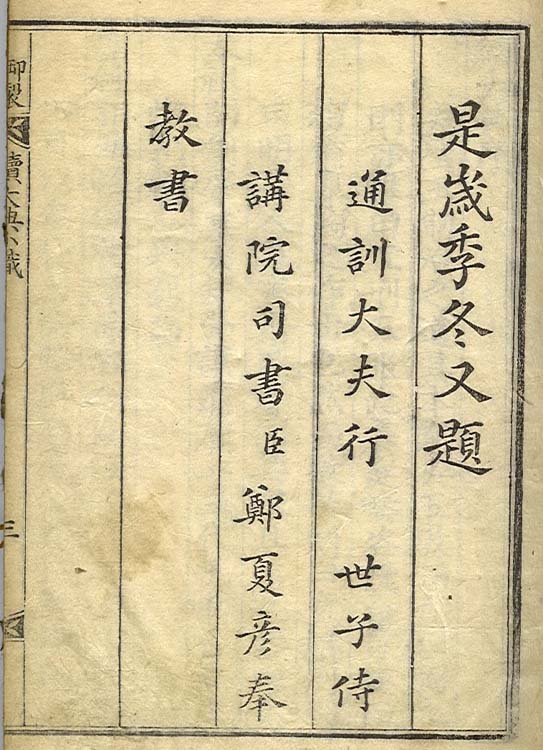 是歲季冬又題
通訓大夫行 世子侍
講院司書臣鄭夏彦奉
教書
御製
續大典小識
三